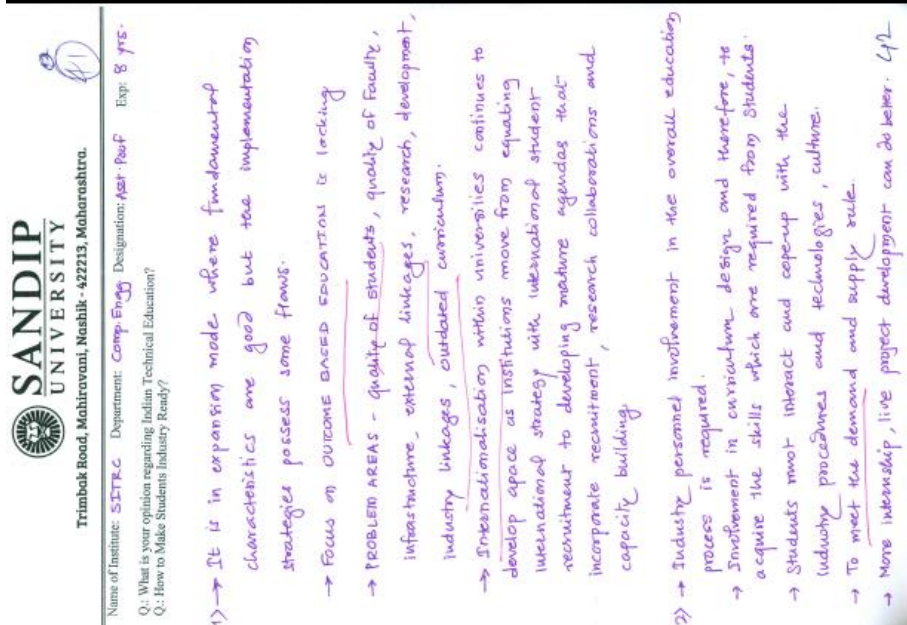 41
SANDIP
UNIVERSITY
Trimbak Road, Mahiravani, Nashik - 422213, Maharashtra.
Name of Institute: SITRC Department: Comp. Engg Designation: Asst. Pouf Exp: 8 yrs.
Q.: What is your opinion regarding Indian Technical Education?
Q.: How to Make Students Industry Ready?
1) → It is in expansion mode where fundamental
characteristics are good but the implementation
strategies possess some flaws.
→ Focus on OUTCOME BASED EDUCATION is lacking
→ PROBLEM AREAS - quality of students, quality of Faculty,
infrastructure, external linkages, research, development,
industry linkages, outdated curriculum.
→ Internationalisation within universities continues to
develop apace as institutions move from equating
international strategy with international student
recruitment to developing mature agendas that
incorporate recruitment, research collaborations and
capacity building
2) → Industry personnel involvement in the overall education
process is required.
→ Involvement in curriculum design and therefore, to
acquire the skills which are required from students.
→ Students must interact and cope-up with the
industry procedures and technologies, culture.
→ To meet the demand and supply rule.
→ More internship, live project development can do better. 42